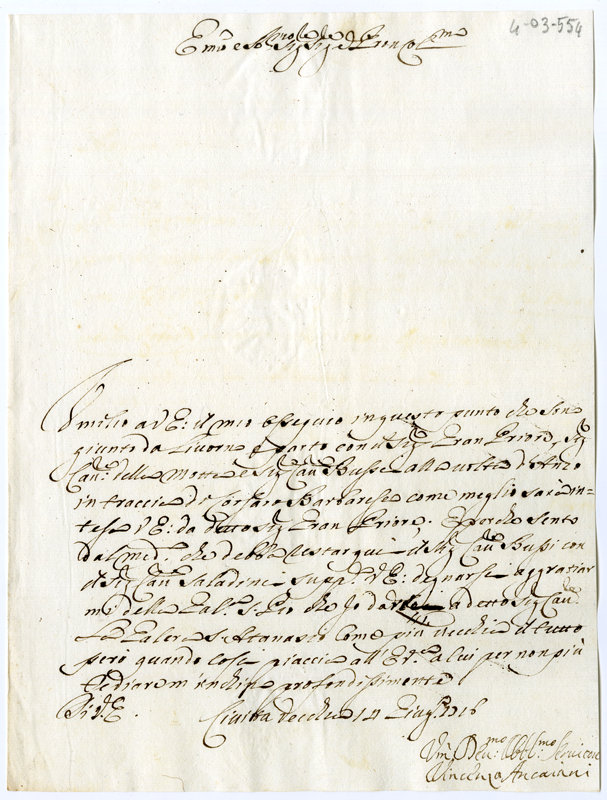 4-03-554
Em̃o e
Umilio a V.E: il mio ossequio in questo punto che son
giunto da Livorno e parto con il Sig.r Gran Priore, Sig.r
Cau: delle Motte e Sig.r Cau.r Bussi alla volta d'Anzo
in traccia de Corsaro Barbaresco come meglio sarà in=
tesa V.E: da detto Sig.r Gran Priore. E perche sento
dal med.o che debba restar qui il Sig.r Cau.r Bussi con
il Sig.r Cau.r Saladini supp.co V.E: degnarsi aggratiar
mi della Gal.a S. Pio che Io darei a detto Sig.r Cau.r
La Galera S. Atanasio come più vecchia il tutto
però quando così piaccia all' E.V. a cui per non più
tediare m'inchino profondissimamente
Di V.E. Civita Vecchia 14 Giug.o 1716
Um.o Dev.mo Obl.mo Servitore
Vincenzo Ancaiani